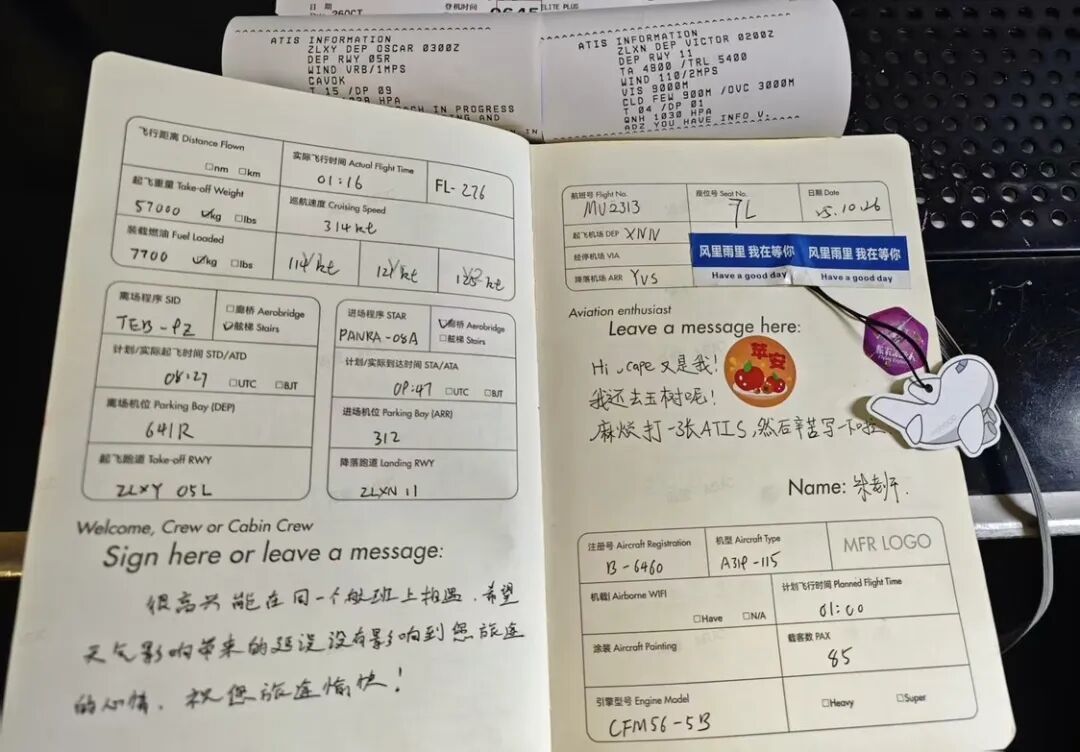 日 期
26OCT
登机时间
0645
ELITE PLUS
ATIS INFORMATION
ZLXY DEP OSCAR 0300Z
DEP RWY 05R
WIND VRB/1MPS
CAVOK
T 15 /DP 09
HPA
IN PROGRESS
AND
IN
ATIS INFORMATION
ZLXN DEP VICTOR 0200Z
DEP RWY 11
TA 4800 /TRL 5400
WIND 110/2MPS
VIS 9000M
CLD FEW 900M /OVC 3000M
T 04 /DP 01
QNH 1030 HPA
ADZ YOU HAVE INFO V.
飞行距离 Distance Flown
□nm □km
实际飞行时间 Actual Flight Time
01:16
FL-276
起飞重量 Take-off Weight
57000 ✓kg □lbs
巡航速度 Cruising Speed
314kt
装载燃油 Fuel Loaded
7700 ✓kg □lbs
离场程序 SID
□廊桥 Aerobridge
✓舷梯 Stairs
计划/实际起飞时间 STD/ATD
08:27 □UTC □BJT
离场机位 Parking Bay (DEP)
641R
起飞跑道 Take-off RWY
ZLXY 05L
进场程序 STAR
PANKA-08A
✓廊桥 Aerobridge
□舷梯 Stairs
计划/实际到达时间 STA/ATA
09:47 □UTC □BJT
进场机位 Parking Bay (ARR)
312
降落跑道 Landing RWY
ZLXN 11
Welcome, Crew or Cabin Crew
Sign here or leave a message:
很高兴能在同一个航班上相遇.希望
天气影响带来的延误没有影响到您旅途
的心情.祝您旅途愉快!
航班号 Flight No.
MU2313
座位号 Seat No.
7L
日期 Date
25.10.26
起飞机场 DEP XNN
经停机场 VIA
降落机场 ARR YUS
风里雨里 我在等你 风里雨里 我在等你
Have a good day Have a good day
Aviation enthusiast
Leave a message here:
苹安
Hi, cape 又是我!
我还去玉树呢!
麻烦打一张ATIS,然后辛苦写一下啦
Name:
注册号 Aircraft Registration
B-6460
机型 Aircraft Type
A319-115
MFR LOGO
机载 Airborne WIFI
□Have □N/A
计划飞行时间 Planned Flight Time
01:00
涂装 Aircraft Painting
载客数 PAX
85
引擎型号 Engine Model
CFM56-5B
□Heavy □Super